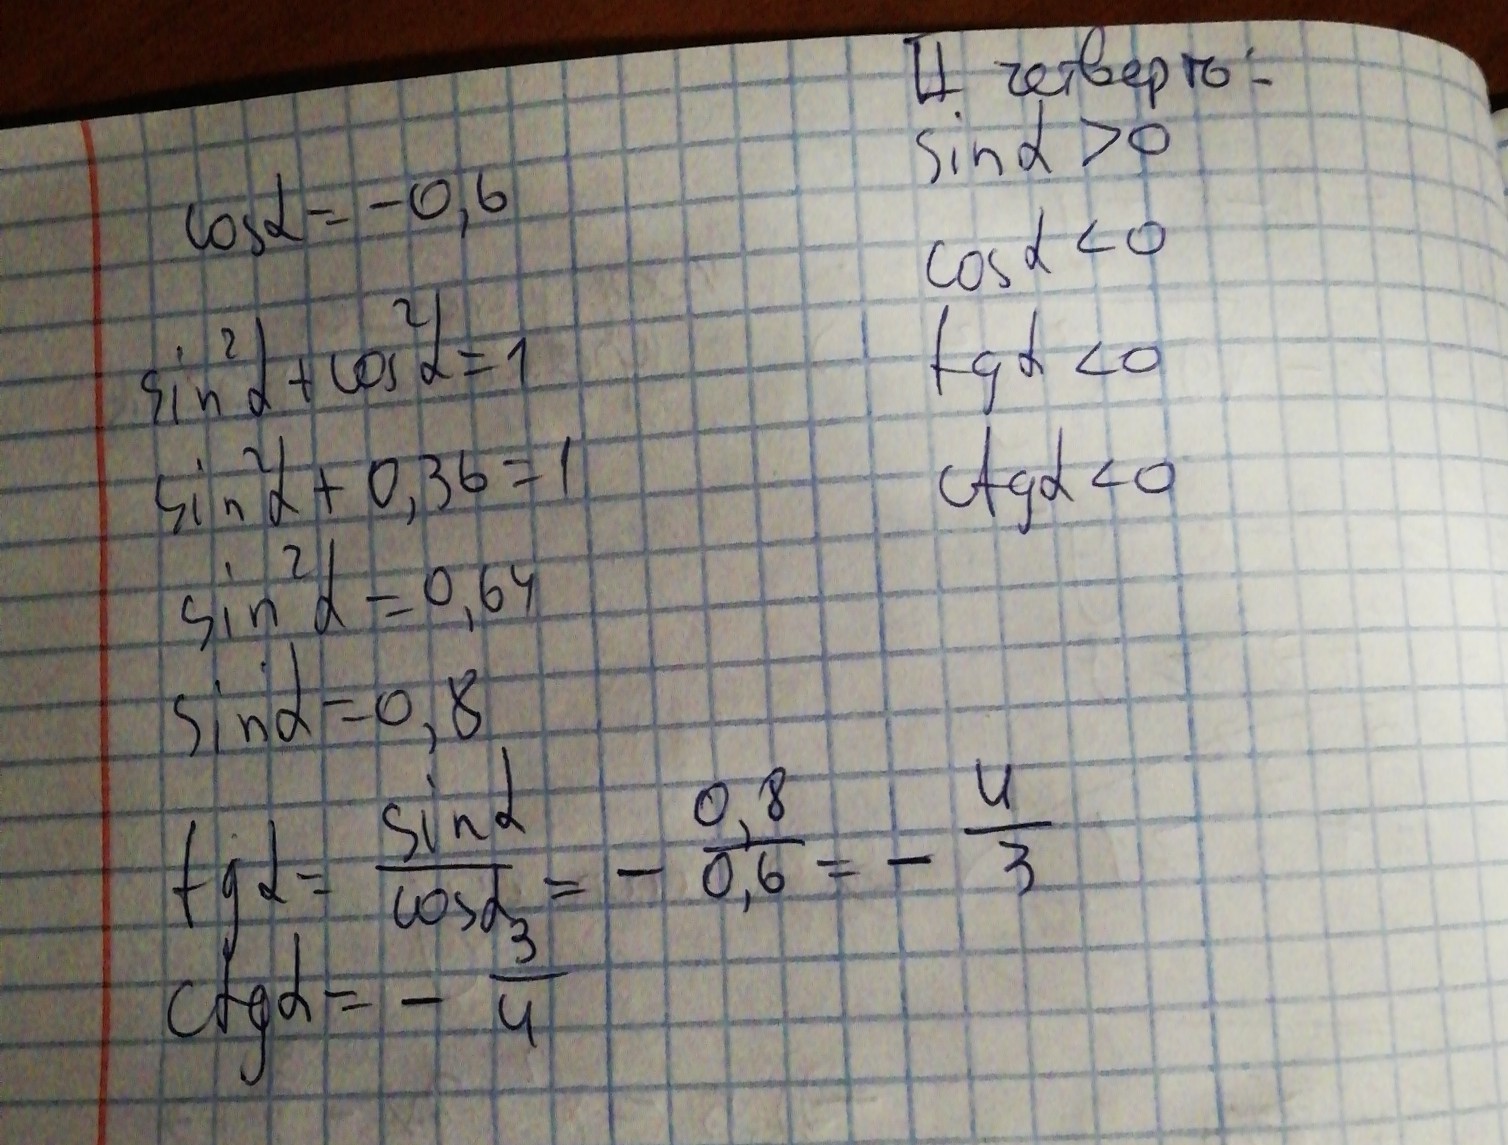 II четверть:
sinα > 0
cosα < 0
tgα < 0
ctgα < 0
cosα = -0,6
sin²α + cos²α = 1
sin²α + 0,36 = 1
sin²α = 0,64
sinα = 0,8
tgα = sinα/cosα = - 0,8/0,6 = - 4/3
ctgα = - 3/4